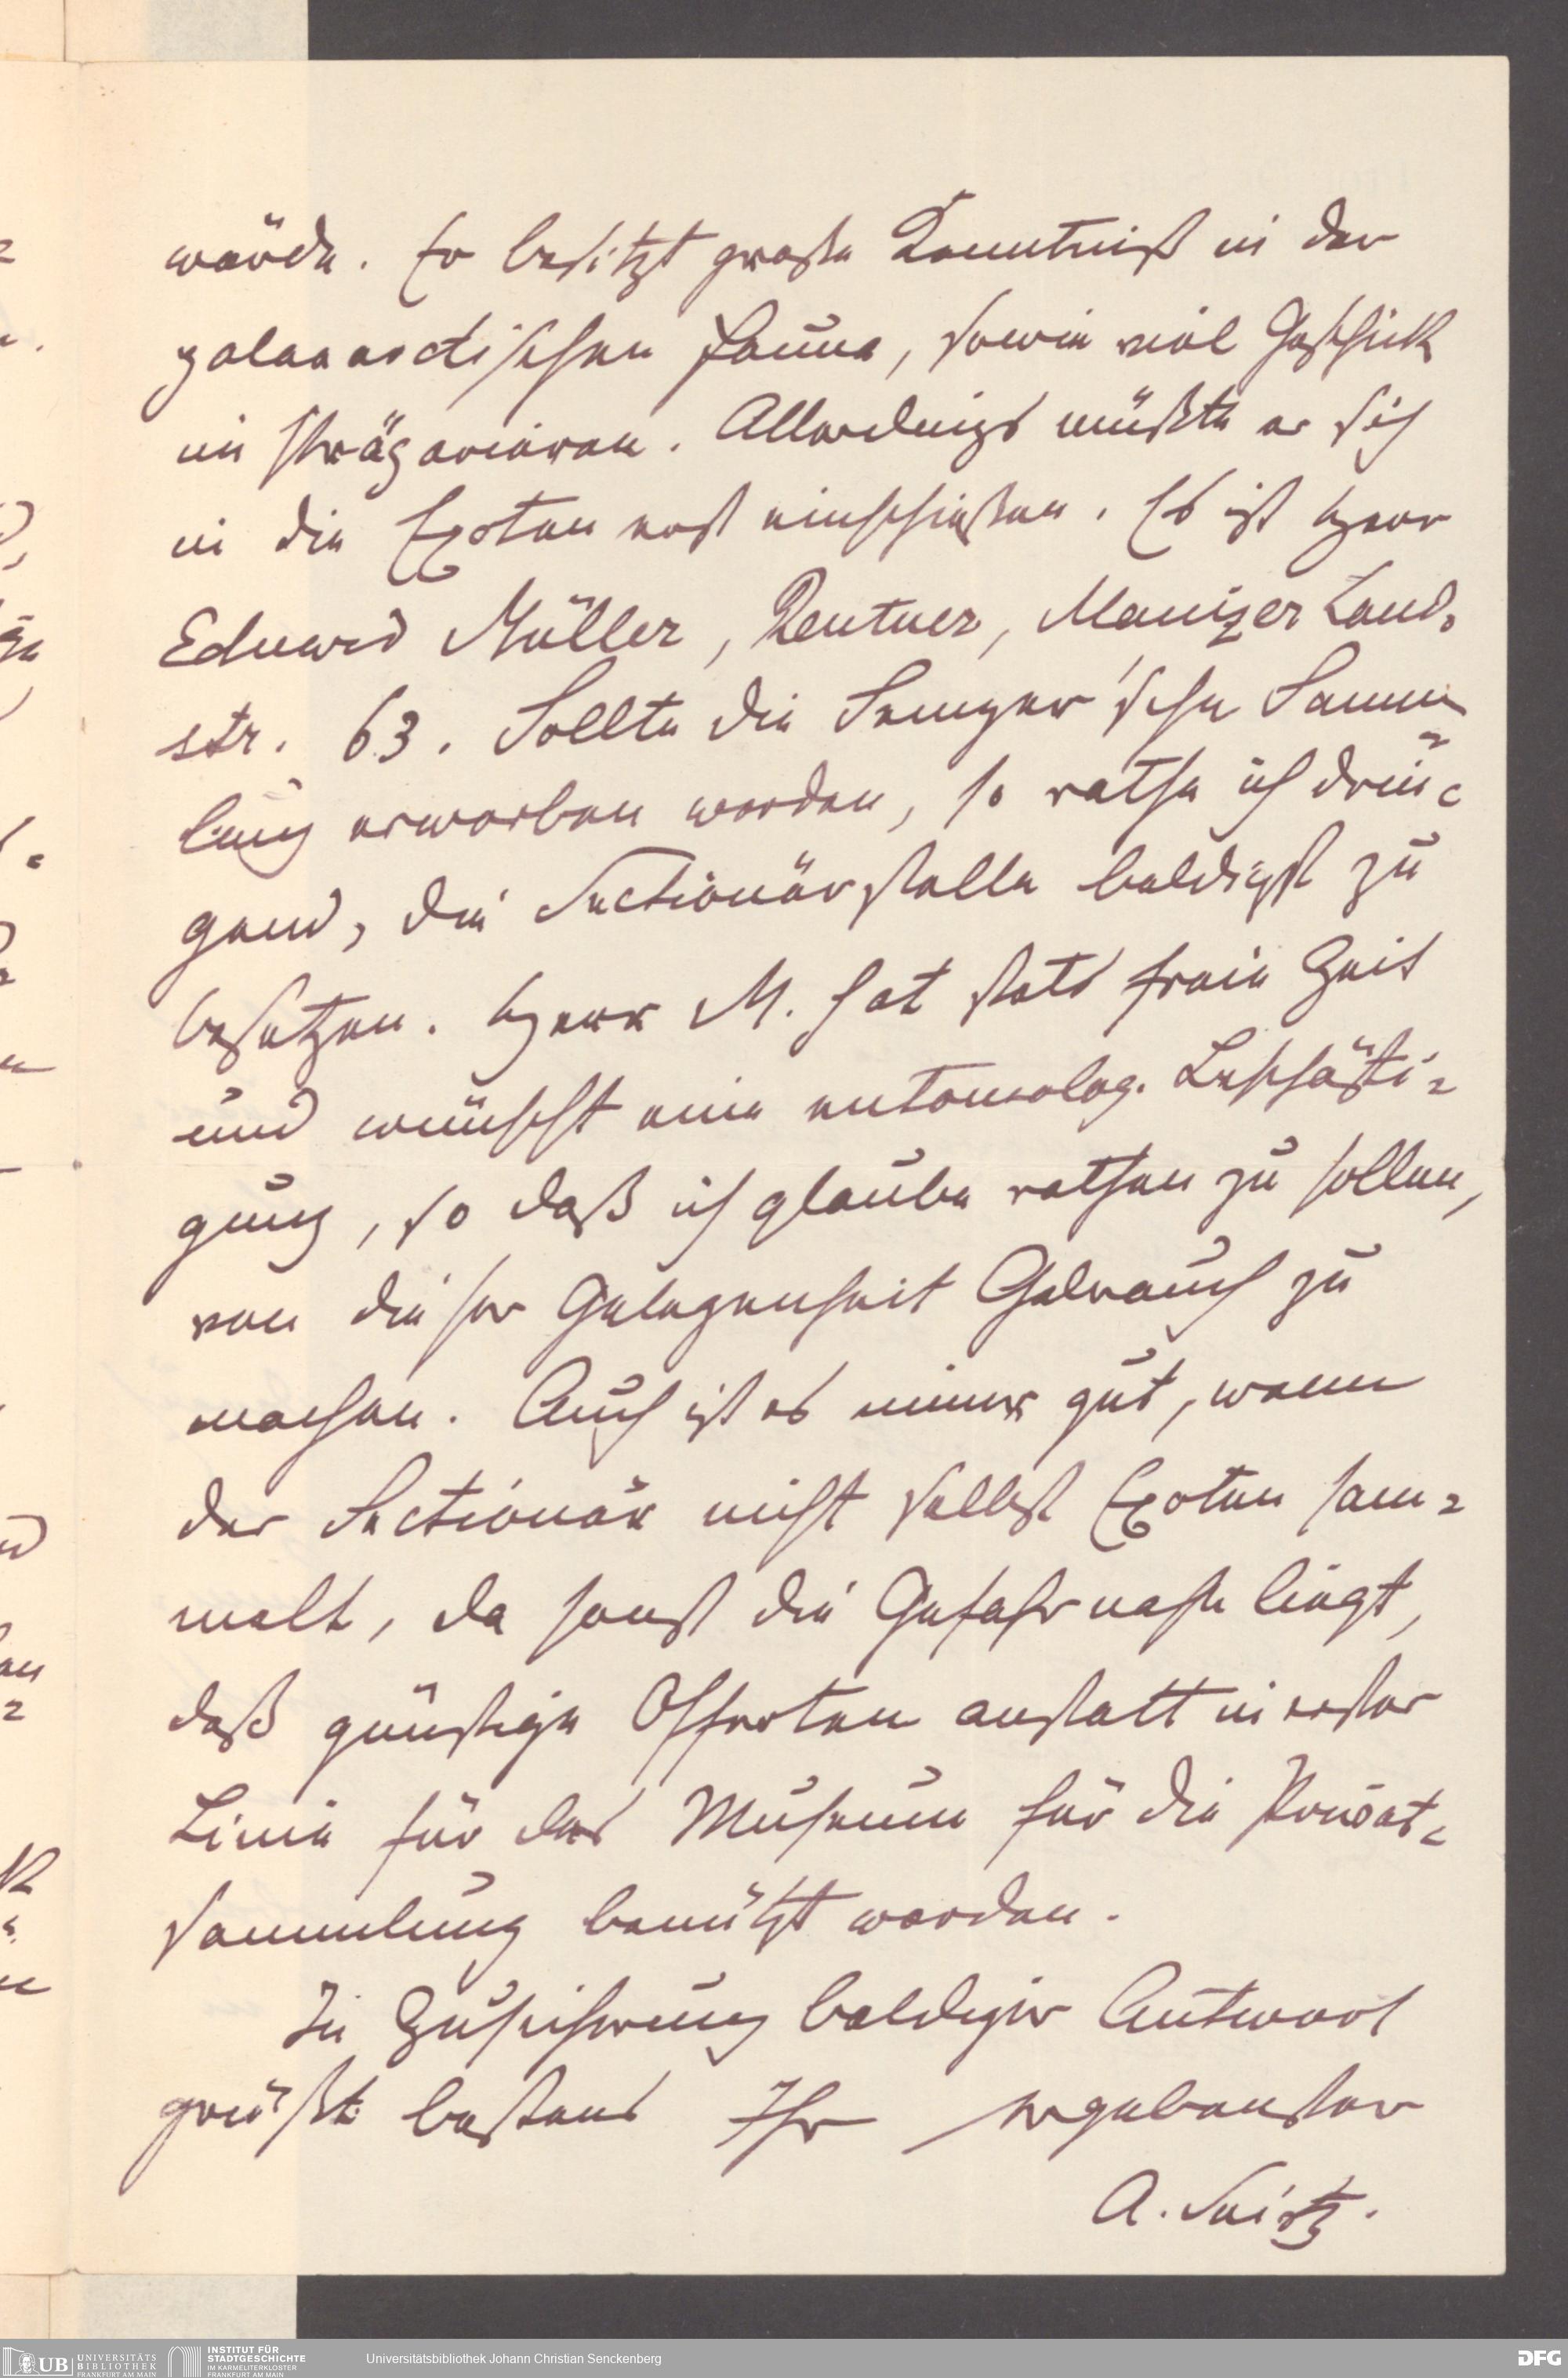 würde. Er besitzt große Kenntniß in der
palaearctischen Fauna, sowie viel Geschick
im Präparieren. Allerdings müßte er sich
in die Exoten erst einschießen. Es ist Herr
Eduard Müller, Rentner, Mainzer Land-
str. 63. Sollte die Semper'sche Samm-
lung erworben werden, so rathe ich drin-
gend, die Sectionärstelle baldigst zu
besetzen. Herr M. hat stets freie Zeit
und wünscht eine entomolog. Beschäfti-
gung, so daß ich glaube rathen zu sollen,
von dieser Gelegenheit Gebrauch zu
machen. Auch ist es immer gut, wenn
der Sectionär nicht selbst Exoten sam-
melt, da sonst die Gefahr nahe liegt,
daß günstige Offerten anstatt in erster
Linie für das Museum für die Privat-
sammlung benützt werden.
In Zusicherung baldiger Antwort
grüßt bestens Ihr ergebenster
A. Seitz.
UB UNIVERSITÄTS BIBLIOTHEK FRANKFURT AM MAIN
INSTITUT FÜR STADTGESCHICHTE IM KARMELITERKLOSTER FRANKFURT AM MAIN
Universitätsbibliothek Johann Christian Senckenberg
DFG